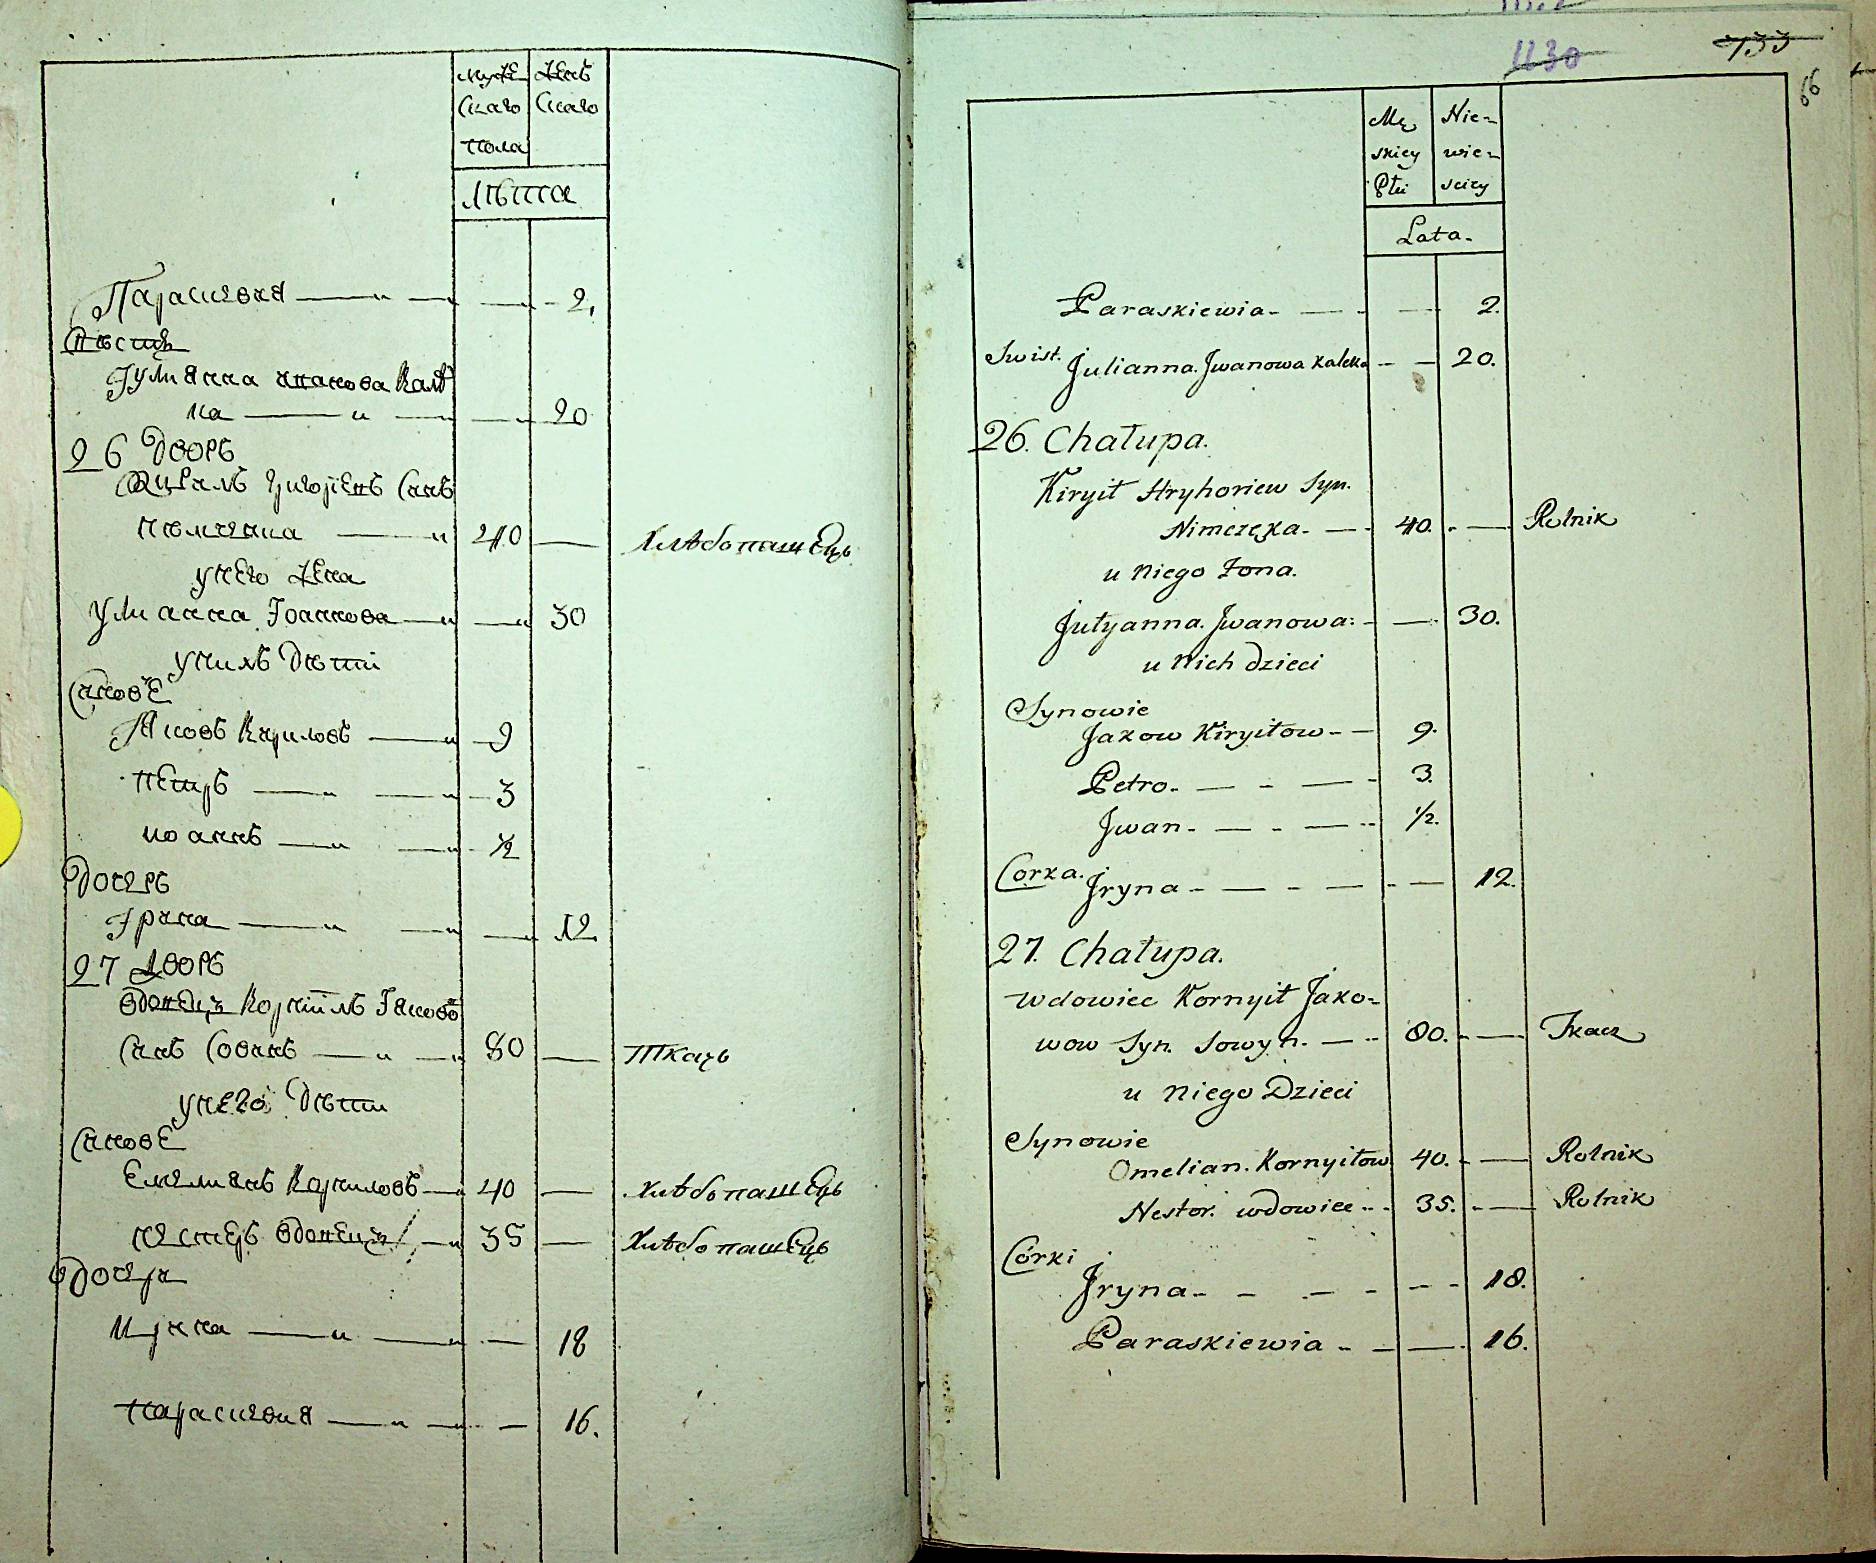 Муже Женъ
скаго скаго
пола
Лѣта
Параскевия — — — 2.
Свѣсць
Іулианна ивановa Калѣ
ка — — — 20
26 Дворъ
Кирилъ григорievъ Синъ
нѣмчика — 40 — Хлѣбопашецъ
унего жена
Улианна Іоаннова — — 30
унихъ Дѣти
Синовѣ
Яковъ Кириловъ — 9
петръ — — 3
иоаннъ — — ½
Дочеръ
Ірина — — — 12
27 Дворъ
вдовецъ Корнилъ Іаковов
Синъ Совинъ — — 80 — Ткачъ
унего Дѣти
Синовѣ
Емелиянъ Корниловъ — 40 — Хлѣбопашецъ
нестеръ вдовецъ — 35 — Хлѣбопашецъ
Дочери
Ирина — — — 18
параскевия — — — 16.
1130 733
66
Mę Nie-
skiey wie-
Płci sciey
Lata.
Paraskiewia - — — 2.
Swist. Julianna. Jwanowa kaleka - — 20.
26. Chałupa.
Kiryił Hryhoriew Syn.
Nimczęka - — 40. - — Rolnik
u niego żona.
Jułyanna. Jwanowa: - — 30.
u nich dzieci
Synowie
Jakow Kiryiłow - — 9.
Petro. — - — 3.
Jwan. — - — ½.
Corka. Jryna - — - — - — 12.
27. Chałupa.
Wdowiec Kornyił Jako-
wow Syn. Sowyn. — - 80. - — Tkacz
u niego Dzieci
Synowie
Omelian. Kornyiłow 40. - — Rolnik
Nestor. wdowiec - - 35. - — Rolnik
Córki
Jryna - - — - - - 18.
Paraskiewia - — — 16.